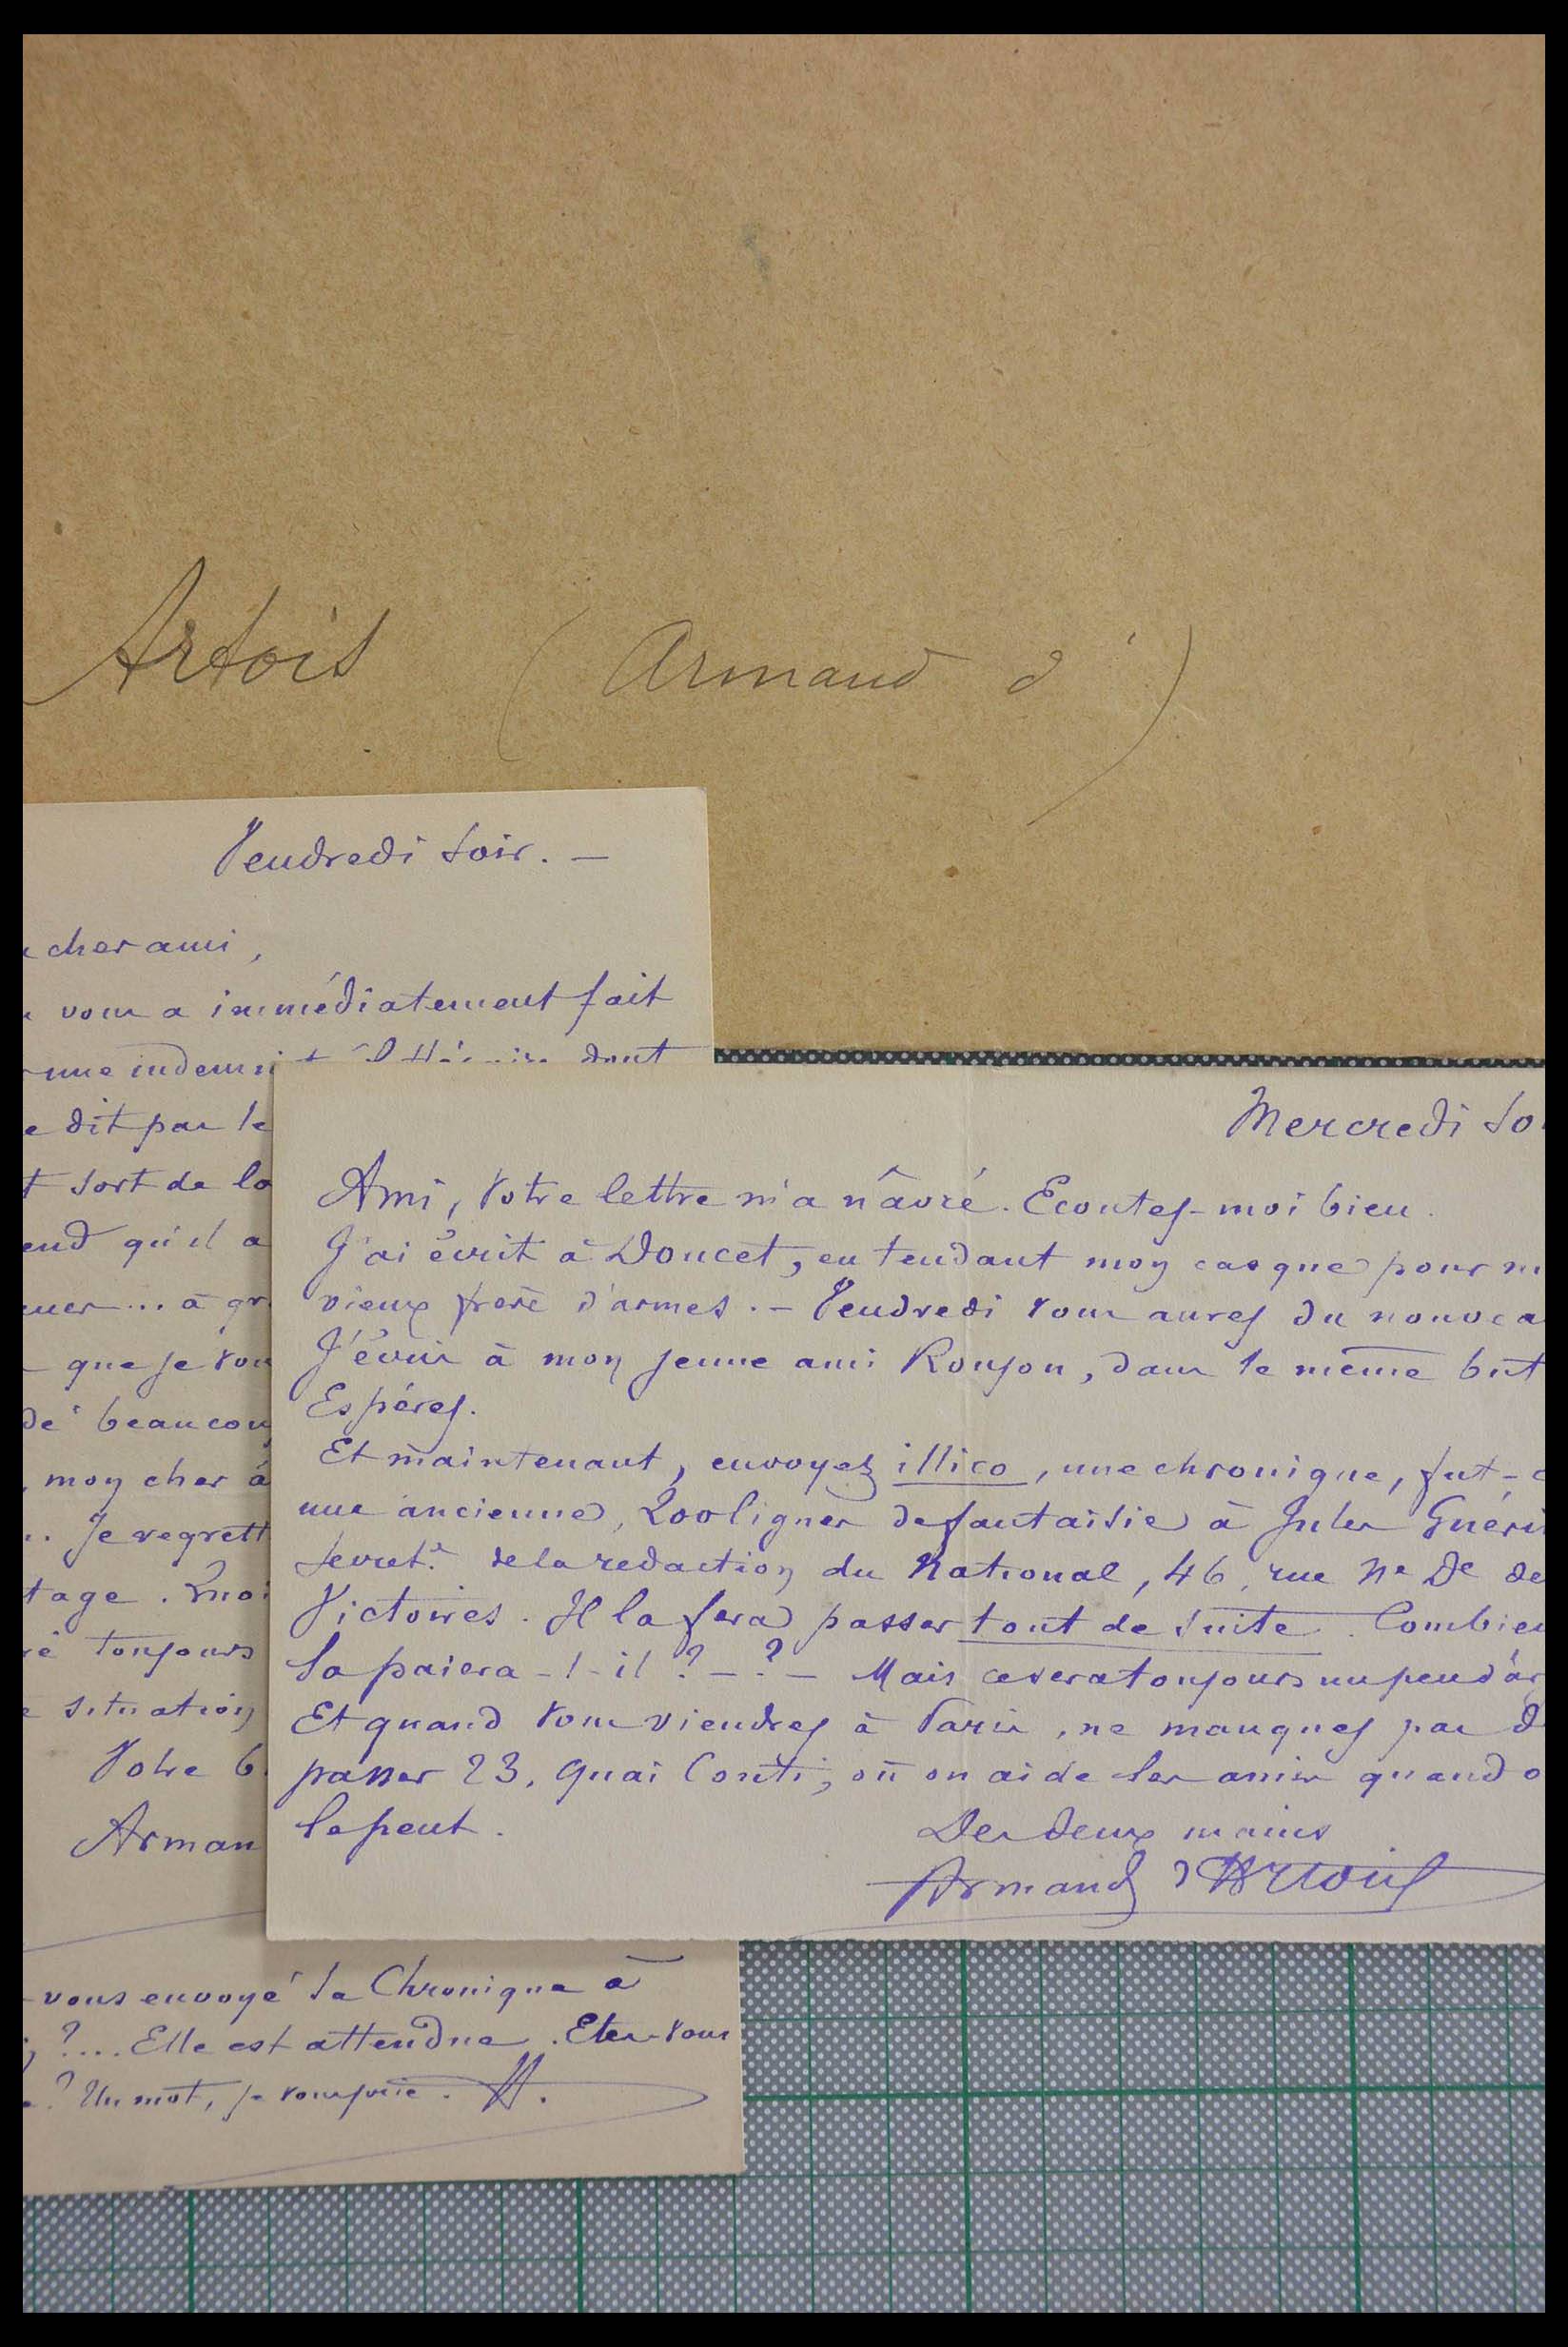 Artois (Armand d')
Vendredi soir. —
cher ami,
vous a immédiatement fait
une indemni dont
e dit par le
t sort de la
end qu'il a
uer... à gr
— que je vou
dé beaucou
, mon cher à
.. Je regrett
tage. Moi
toujours
situation
Votre b
Arman
vous envoyé la Chronique à
?.... Elle est attendue. Etes-vous
? Un mot, je vous prie. A.
Mercredi so
Ami, votre lettre m'a nâvré. Ecoutez-moi bien.
J'ai écrit à Doucet, en tendant mon casque pour m
vieux frère d'armes. — Vendredi vous aurez du nouvea
J'écris à mon jeune ami Roujon, dans le même but
Espérez.
Et maintenant, envoyez illico, une chronique, fut-c
une ancienne, 200 lignes de fantaisie à Jules Guéri
secret.re de la rédaction du National, 46, rue Ne De de
Victoires. Il la fera passer tout de suite. Combien
la paiera-t-il ? — ? — Mais ce sera toujours un peu d'ar
Et quand vous viendrez à Paris, ne manquez pas d
passer 23, quai Conti, où on aide les amis quand o
le peut.
Des deux mains
Armand d'Artois